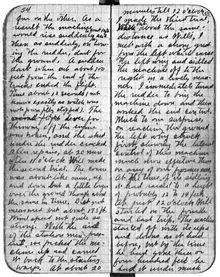 24
one on the other. As a
result the machine would
rise suddenly to about 10 ft.
and then as suddenly, on turning
the rudder, dart for
the ground. A sudden
dart when out about 100
feet from the end of the
tracks ended the flight.
Time about 12 seconds (not
known exactly as watch was
not promptly stopped). The
lever for
throwing off the engine
was broken, and the skid
under the rudder cracked.
After repairs, at 20 min.
after 11 o'clock Will made
the second trial. The course
was about like mine, up
and down but a little longer
over the ground though about
the same in time. Dist. not
measured but about 175 ft.
Wind speed not quite so
strong. With the aid
of the station men present,
we picked the machine
up and carried
it back to the starting
ways. At about 20
minutes till 12 o'clock
I made the third trial.
When out about the same
distance as Will's, I
met with a strong gust
from the left which raised
the left wing and sidled
the machine off to the
right in a lively manner.
I immediately turned
the rudder to bring the
machine down and then
worked the end control.
Much to our surprise
on reaching the ground
the left wing struck
first, showing the lateral
control of this machine
much more effective than
on any of our former ones.
At the time of its sidling
it had raised to a height
of probably 12 to 14 feet.
At just 12 o'clock Will
started on the fourth
and last trip. The machine
started off with its ups
and downs as it had
before, but by the time
he had gone three or
four hundred feet he
had it under much